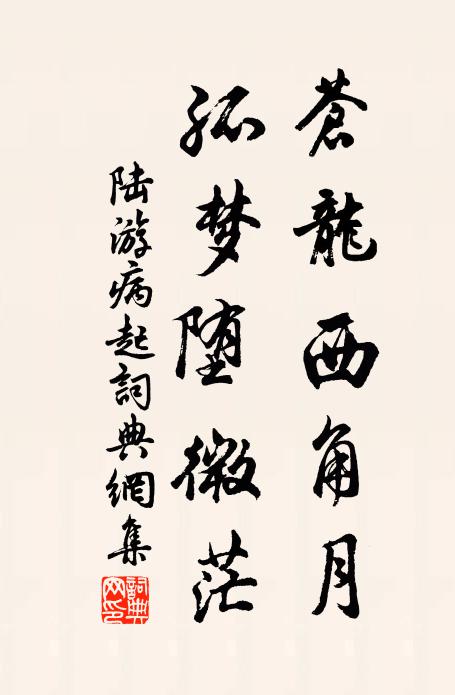 蒼龍西角月
孤梦堕微茫
陆游病起詞典網集
詞典网印